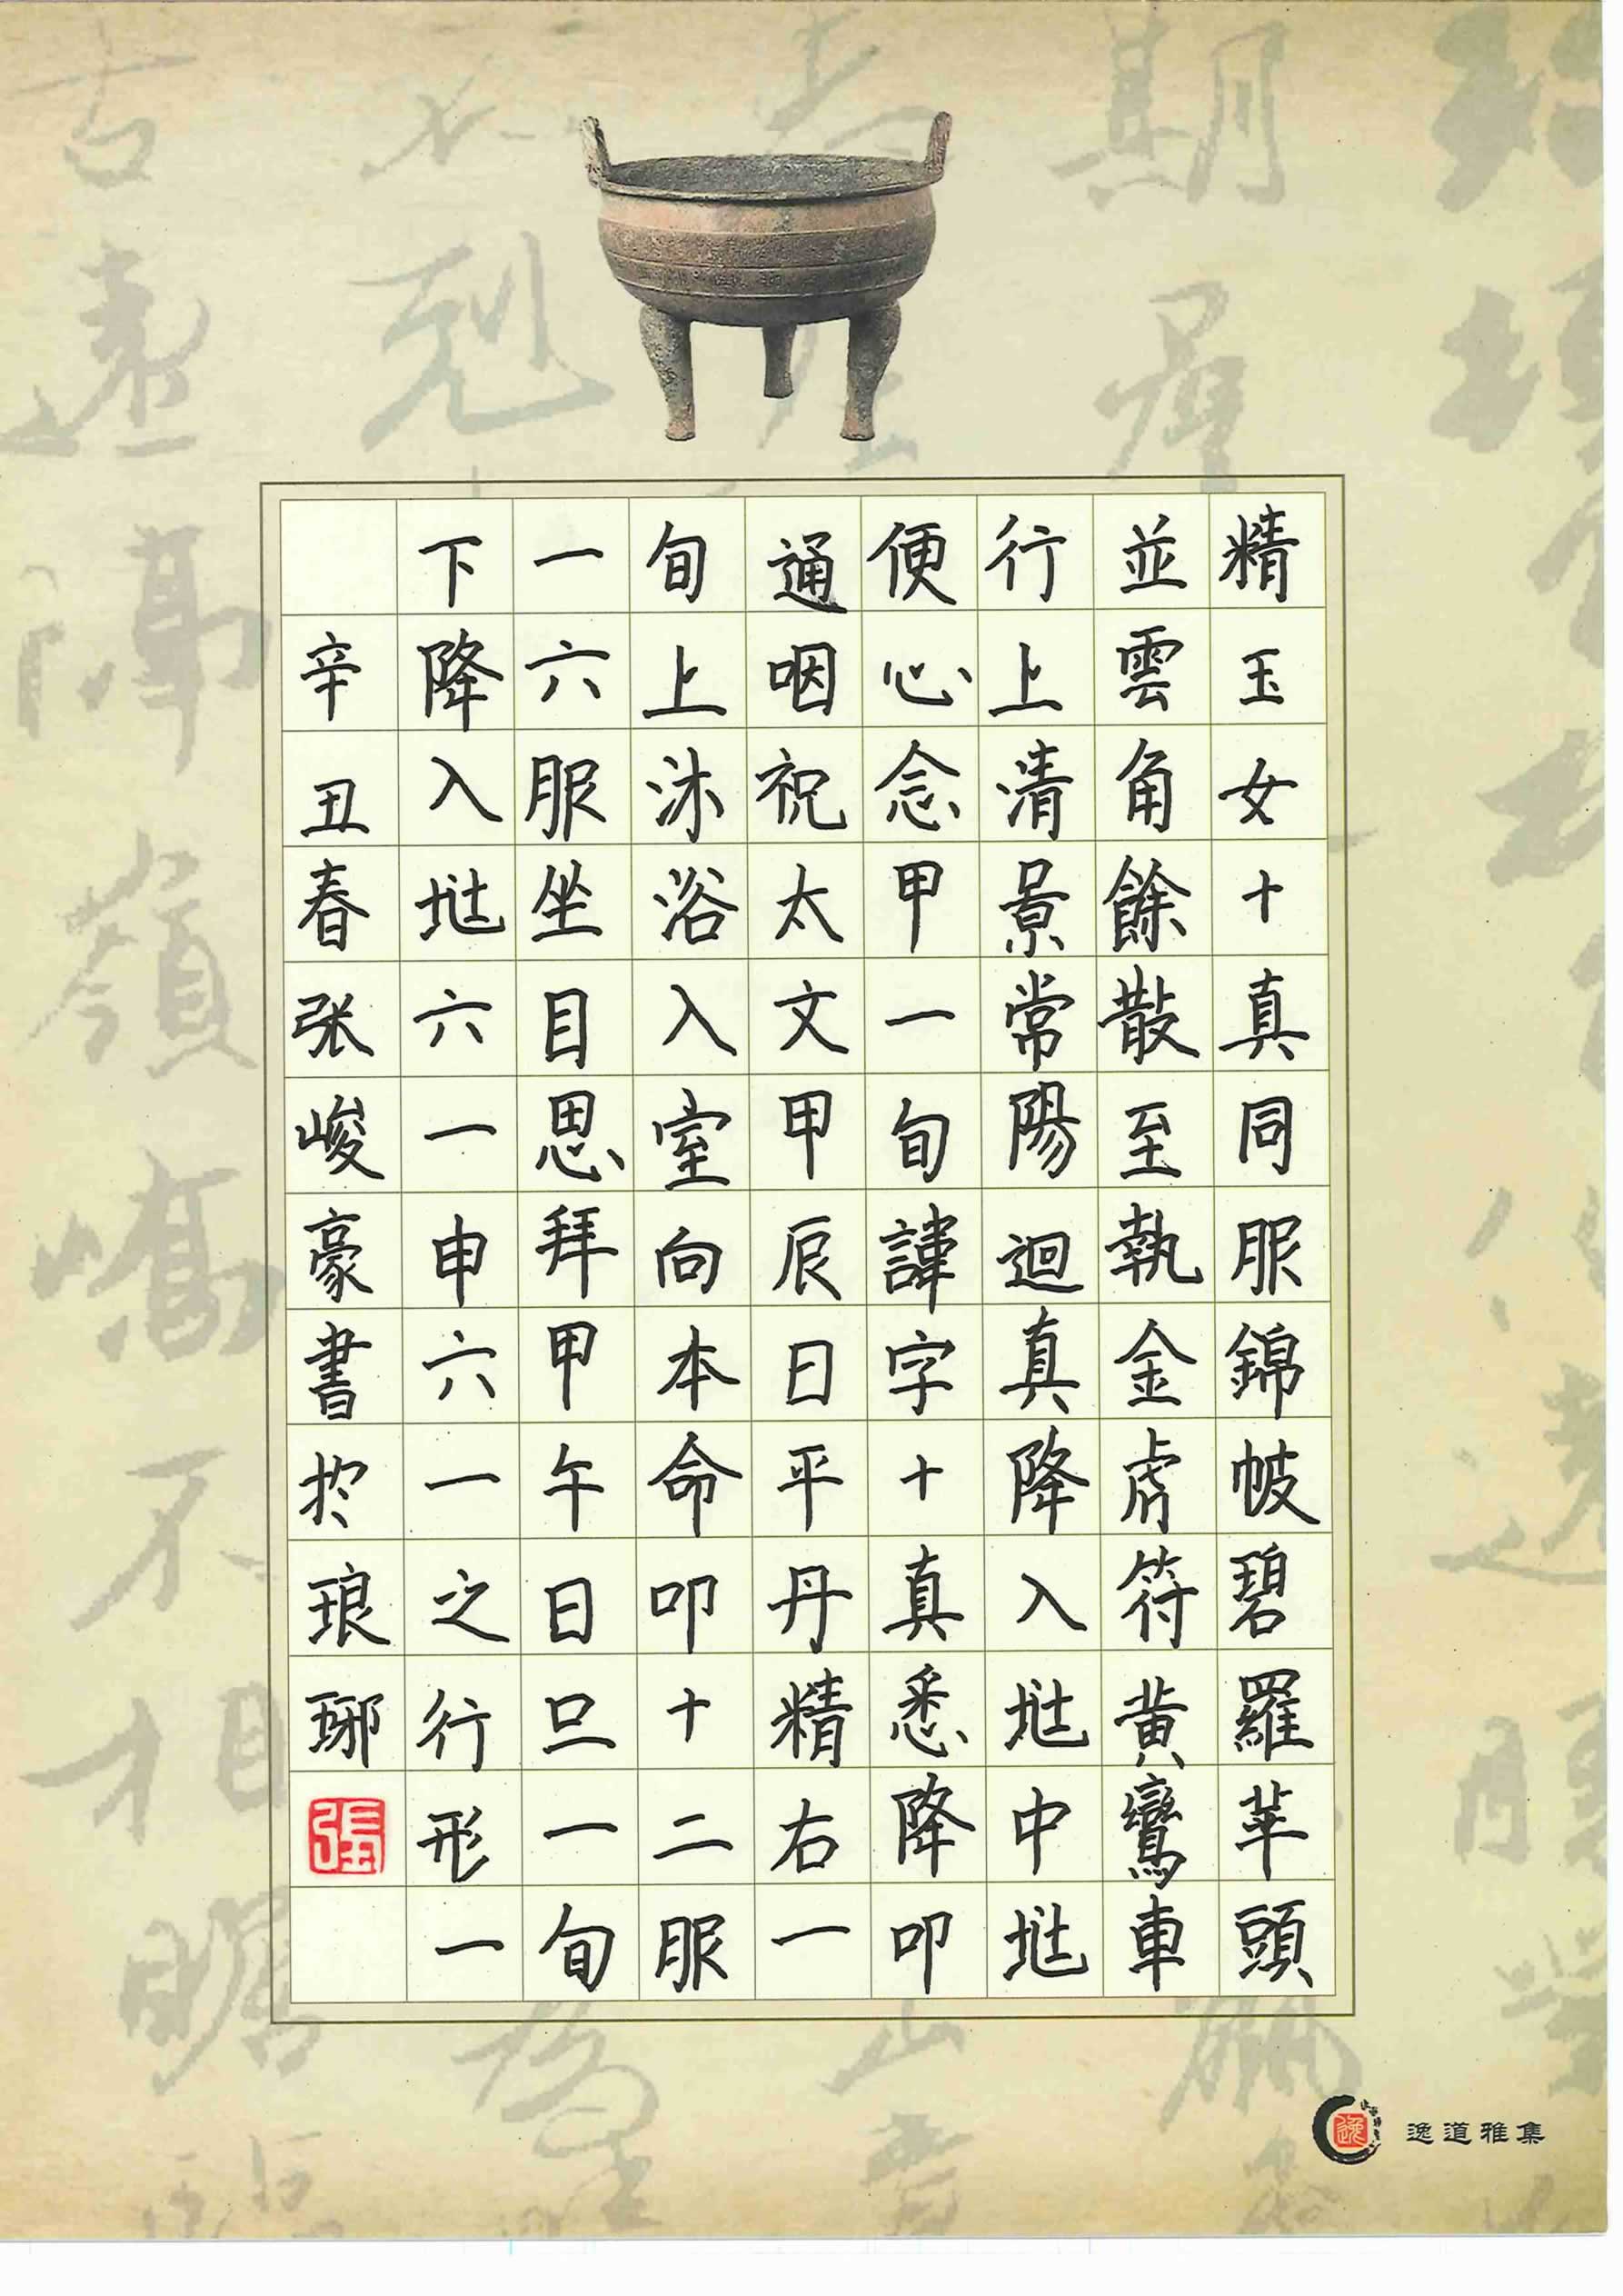 精玉女十真同服錦帔碧羅苹頭
並雲角餘散至執金虎符黄鸞車
行上清景常陽迴真降入埊中埊
便心念甲一旬諱字十真悉降叩
通咽祝太文甲辰日平丹精右一
旬上沐浴入室向本命叩十二服
一六服坐目思拜甲午日旦一旬
下降入埊六一申六一之行形一
辛丑春张峻豪書於琅琊
張
逸道雅集